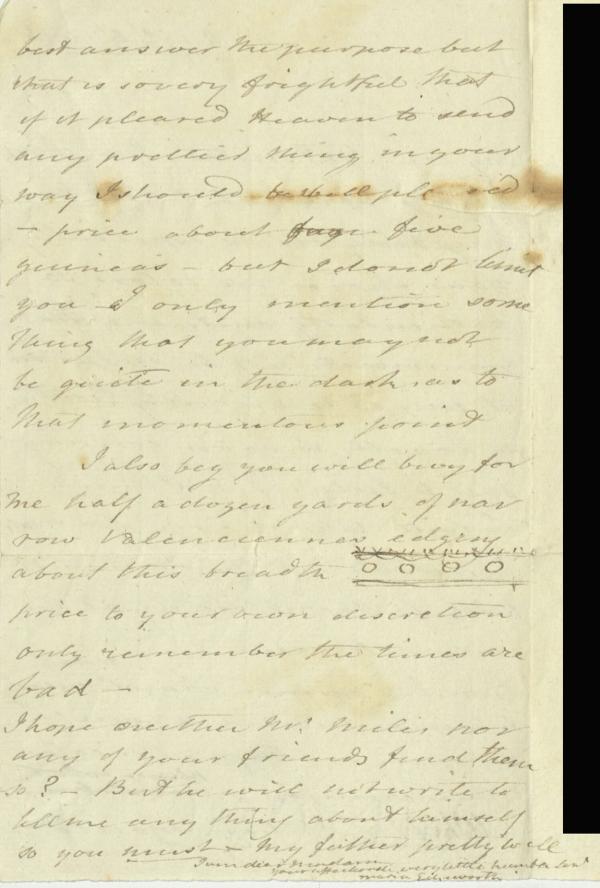 best answer the purpose but
that is so very frightful that
if it pleased Heaven to send
any prettier thing in your
way I should be well pleased
– price about five
guineas – but I do not limit
you – I only mention some
thing that you may not
be quite in the dark as to
that momentous point
I also beg you will buy for
me half a dozen yards of nar
row Valenciennes edging
about this breadth
price to your own discretion
only remember the times are
bad –
I hope neither Mr. Miles nor
any of your friends find them
so? – But he will not write to
tell me any thing about himself
so you must – My father pretty well
I am dear Madam
your affectionate very little humble Sert
Maria Edgeworth